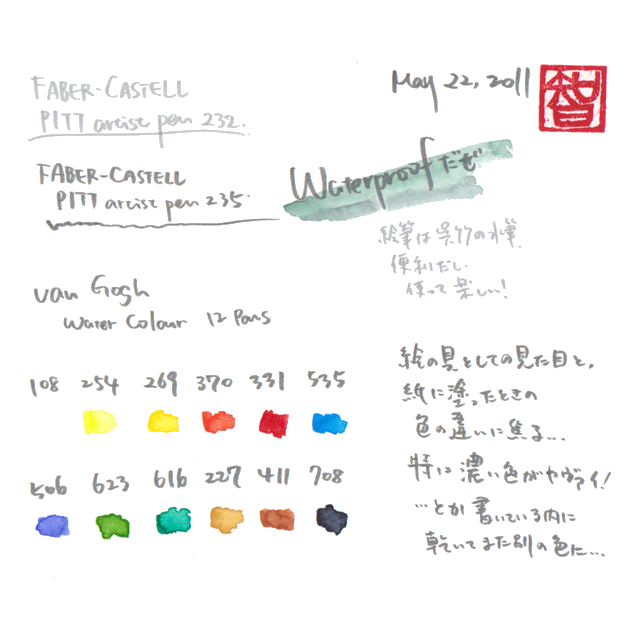 FABER-CASTELL
PITT artist pen 232.
FABER-CASTELL
PITT artist pen 235.
May 22, 2011
智
Waterproofだぜ
絵筆は呉竹の水筆.
便利だし
使って楽しい!
van Gogh
Water Colour 12 Pans
108 254 269 370 331 535
506 623 616 227 411 708
絵の具としての見た目と,
紙に塗ったときの
色の違いに焦る...
特に濃い色がヤヴァイ!
...とか書いている内に
乾いてまた別の色に...